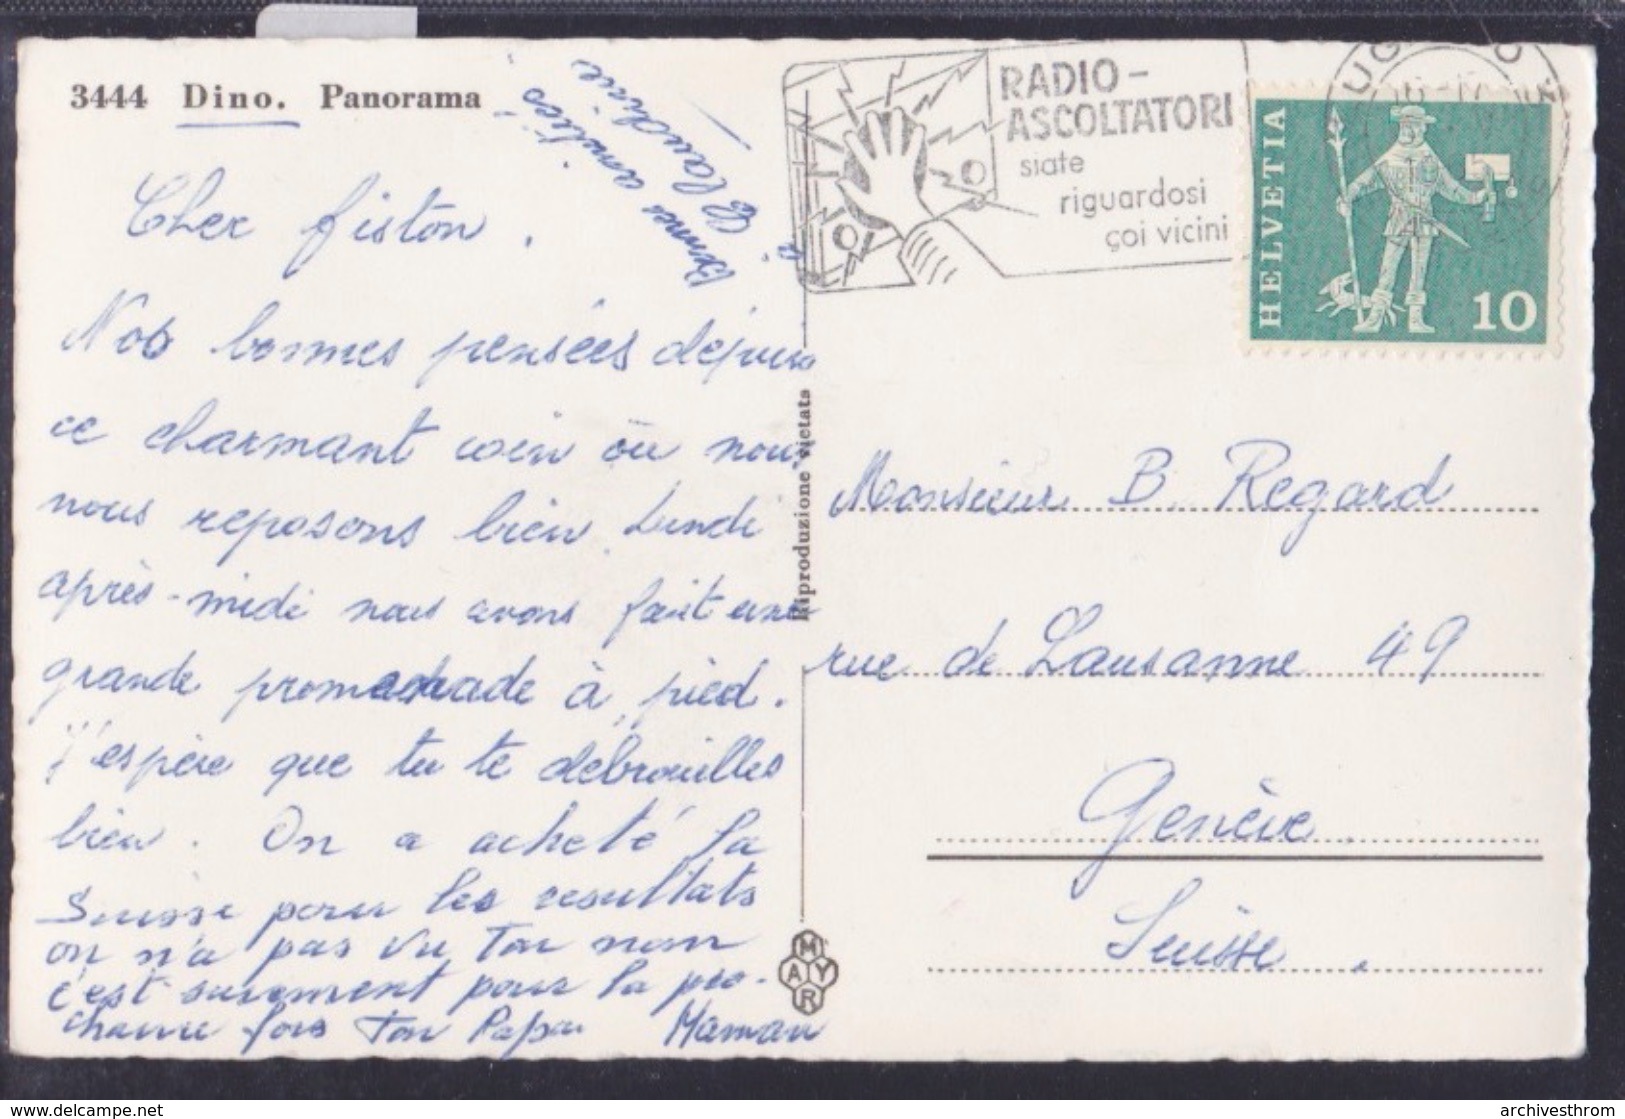 3444 Dino. Panorama
Bonnes amitiés
à Claudine
Cher fiston,
Nos bonnes pensées depuis
ce charmant coin où nous
nous reposons bien. Lundi
après-midi nous avons fait une
grande promenade à pied.
J'espère que tu te débrouilles
bien. On a acheté la
Suisse pour les resultats
on n'a pas vu ton nom
c'est surement pour la pro-
chaine fois Ton Papa Maman
RADIO-
ASCOLTATORI
siate
riguardosi
coi vicini
HELVETIA
10
Riproduzione vietata
Monsieur B. Regard
rue de Lausanne 49
Genève
Suisse.
MAYR
www.delcampe.net
archivesthrom